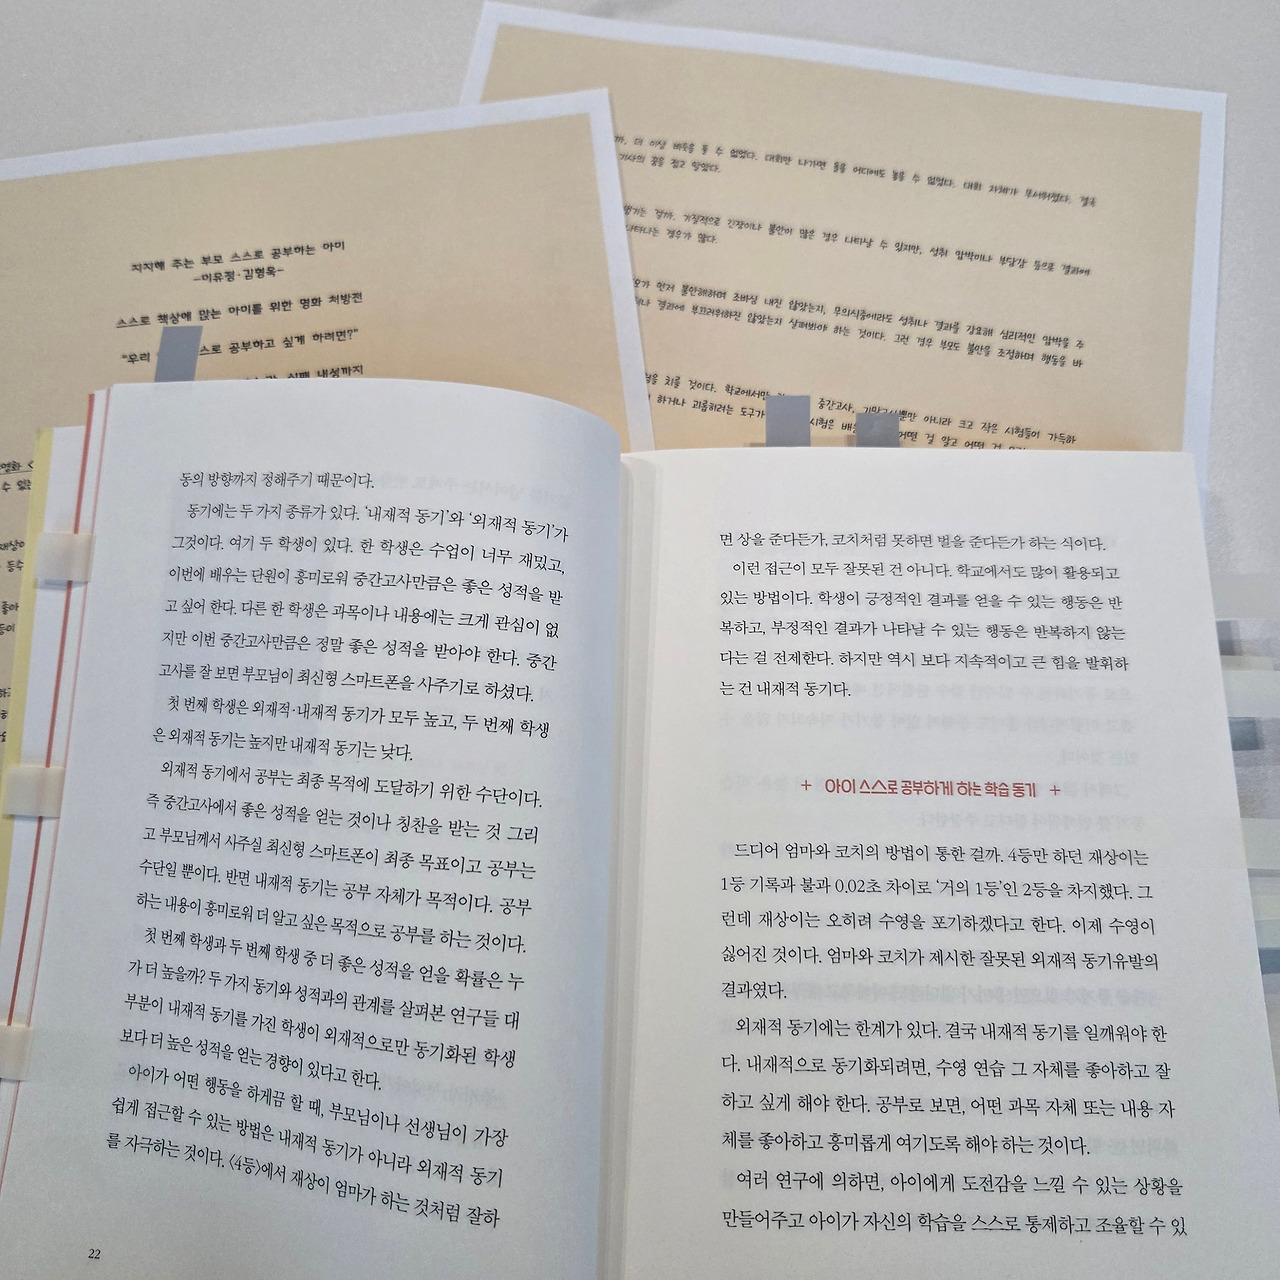 지지해 주는 부모 스스로 공부하는 아이
-이유정·김형욱-
스스로 책상에 앉는 아이를 위한 명화 처방전
"우리 스로 공부하고 싶게 하려면?"
실패 내성까지
더 이상 바둑을 둘 수 없었다. 대회만 나가면 돌을 어디에도 놓을 수 없었다. 대회 자체가 무서워졌다. 결국
기사의 꿈을 접고 말았다.
생기는 걸까. 기질적으로 긴장이나 불안이 많은 경우 나타날 수 있지만, 성취 압박이나 부담감 등으로 결과에
나타나는 경우가 많다.
먼저 불안해하며 조바심 내진 않았는지, 무의식중에라도 성취나 결과를 강요해 심리적인 압박을 주
결과에 부끄러워하진 않았는지 살펴봐야 하는 것이다. 그런 경우 부모도 불안을 조절하며 행동을 바
시험을 치를 것이다. 학교에서만 중간고사, 기말고사뿐만 아니라 크고 작은 시험들이 가득하
하거나 괴롭히려는 도구가 시험은 어떤 걸 알고 어떤 건
동의 방향까지 정해주기 때문이다.
동기에는 두 가지 종류가 있다. '내재적 동기'와 '외재적 동기'가
그것이다. 여기 두 학생이 있다. 한 학생은 수업이 너무 재밌고,
이번에 배우는 단원이 흥미로워 중간고사만큼은 좋은 성적을 받
고 싶어 한다. 다른 한 학생은 과목이나 내용에는 크게 관심이 없
지만 이번 중간고사만큼은 정말 좋은 성적을 받아야 한다. 중간
고사를 잘 보면 부모님이 최신형 스마트폰을 사주기로 하셨다.
첫 번째 학생은 외재적·내재적 동기가 모두 높고, 두 번째 학생
은 외재적 동기는 높지만 내재적 동기는 낮다.
외재적 동기에서 공부는 최종 목적에 도달하기 위한 수단이다.
즉 중간고사에서 좋은 성적을 얻는 것이나 칭찬을 받는 것 그리
고 부모님께서 사주실 최신형 스마트폰이 최종 목표이고 공부는
수단일 뿐이다. 반면 내재적 동기는 공부 자체가 목적이다. 공부
하는 내용이 흥미로워 더 알고 싶은 목적으로 공부를 하는 것이다.
첫 번째 학생과 두 번째 학생 중 더 좋은 성적을 얻을 확률은 누
가 더 높을까? 두 가지 동기와 성적과의 관계를 살펴본 연구들 대
부분이 내재적 동기를 가진 학생이 외재적으로만 동기화된 학생
보다 더 높은 성적을 얻는 경향이 있다고 한다.
아이가 어떤 행동을 하게끔 할 때, 부모님이나 선생님이 가장
쉽게 접근할 수 있는 방법은 내재적 동기가 아니라 외재적 동기
를 자극하는 것이다. 〈4등〉에서 재상이 엄마가 하는 것처럼 잘하
22
면 상을 준다든가, 코치처럼 못하면 벌을 준다든가 하는 식이다.
이런 접근이 모두 잘못된 건 아니다. 학교에서도 많이 활용되고
있는 방법이다. 학생이 긍정적인 결과를 얻을 수 있는 행동은 반
복하고, 부정적인 결과가 나타날 수 있는 행동은 반복하지 않는
다는 걸 전제한다. 하지만 역시 보다 지속적이고 큰 힘을 발휘하
는 건 내재적 동기다.
+ 아이 스스로 공부하게 하는 학습 동기 +
드디어 엄마와 코치의 방법이 통한 걸까. 4등만 하던 재상이는
1등 기록과 불과 0.02초 차이로 '거의 1등'인 2등을 차지했다. 그
런데 재상이는 오히려 수영을 포기하겠다고 한다. 이제 수영이
싫어진 것이다. 엄마와 코치가 제시한 잘못된 외재적 동기유발의
결과였다.
외재적 동기에는 한계가 있다. 결국 내재적 동기를 일깨워야 한
다. 내재적으로 동기화되려면, 수영 연습 그 자체를 좋아하고 잘
하고 싶게 해야 한다. 공부로 보면, 어떤 과목 자체 또는 내용 자
체를 좋아하고 흥미롭게 여기도록 해야 하는 것이다.
여러 연구에 의하면, 아이에게 도전감을 느낄 수 있는 상황을
만들어주고 아이가 자신의 학습을 스스로 통제하고 조율할 수 있